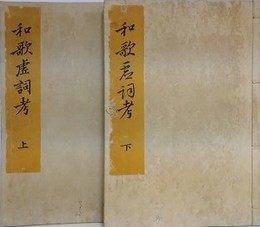 和歌虚詞考
上
和歌虚詞考
下